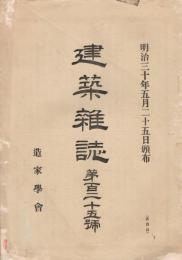 明治三十年五月二十五日頒布
建築雜誌
第百二十五號
造家學會